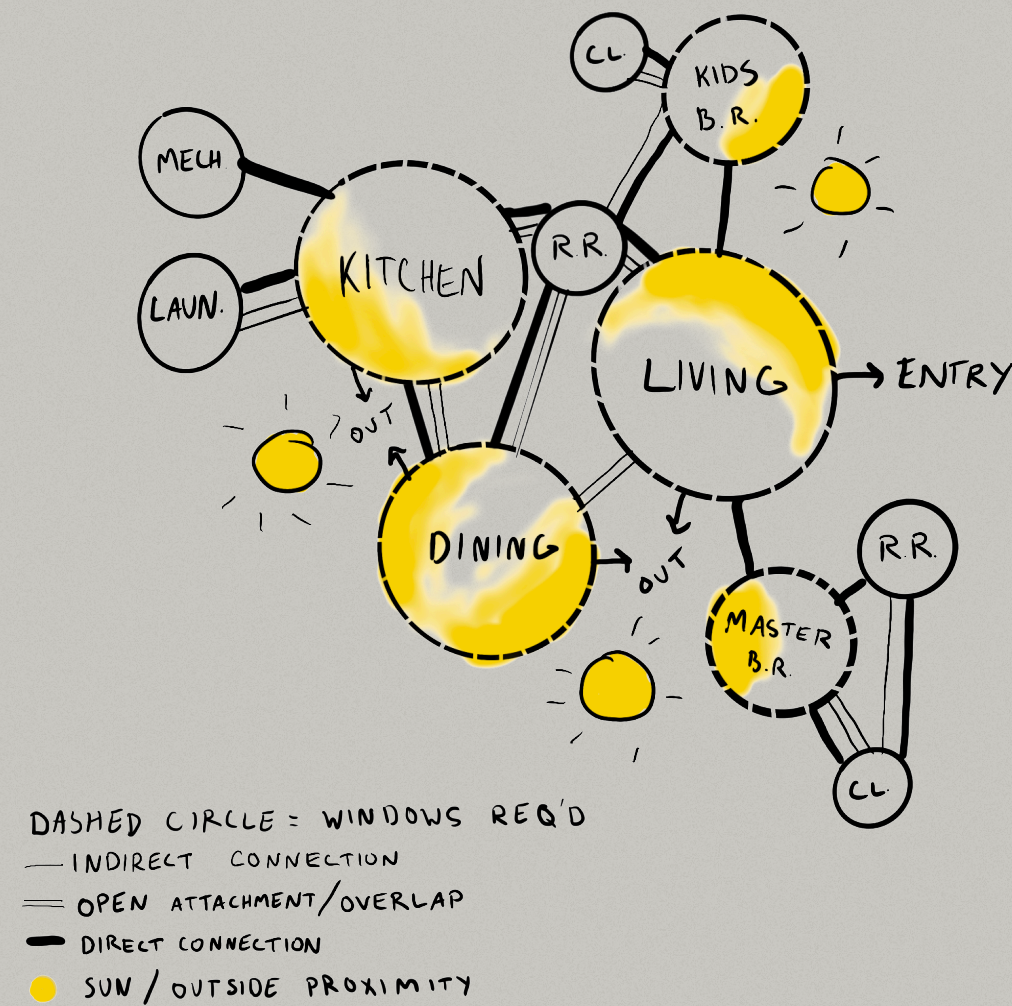 CL.
KIDS
B.R.
MECH.
KITCHEN
R.R.
LAUN.
LIVING
ENTRY
OUT
DINING
OUT
R.R.
MASTER
B.R.
CL.
DASHED CIRCLE = WINDOWS REQ'D
INDIRECT CONNECTION
OPEN ATTACHMENT/OVERLAP
DIRECT CONNECTION
SUN / OUTSIDE PROXIMITY